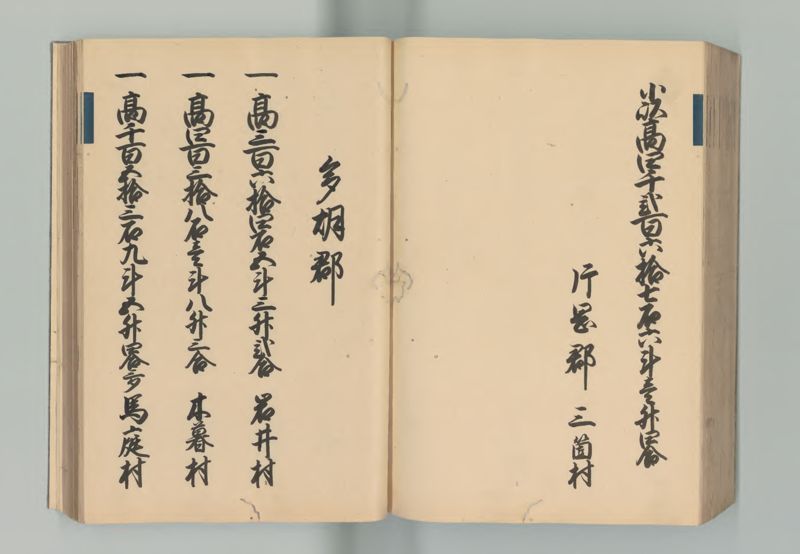 小以高四千弐百六拾七石六斗壱升四合
片岡郡 三箇村
多胡郡
一 高三百六拾四石五斗三升弐合 岩井村
一 高四百三拾八石壱斗八升三合 木暮村
一 高千百五拾三石九斗五升四合 馬庭村